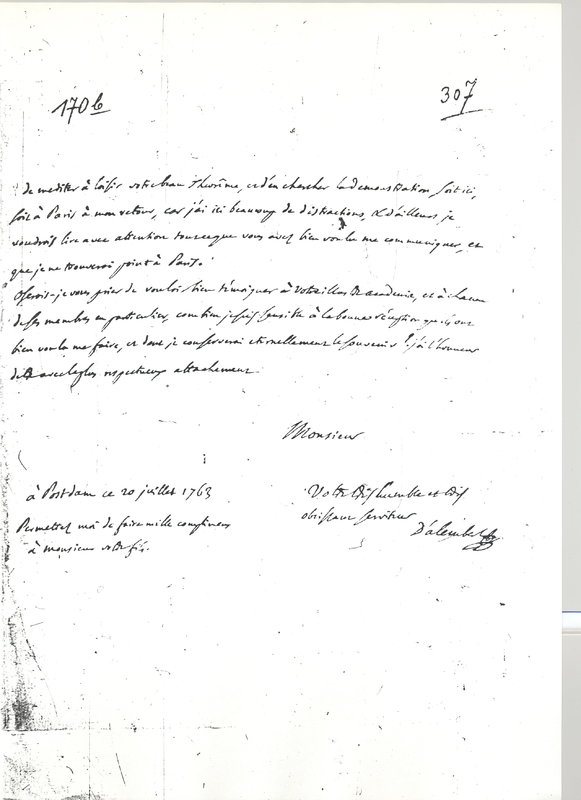 170b
307
de mediter à loisir votre beau Theorême, et d'en chercher la demonstration, soit ici,
soit à Paris à mon retour, car j'ai ici beaucoup de distractions, & d'ailleurs je
voudrois lire avec attention tout ce que vous avez bien voulu me communiquer, et
que je ne trouverai point à Paris.
Oserois-je vous prier de vouloir bien témoigner à votre illustre academie, et à chacun
de ses membres en particulier, combien je suis sensible à la bonne réception qu'ils ont
bien voulu me faire, et dont je conserverai eternellement le souvenir! j'ai l'honneur
d'être avec le plus respectueux attachement
Monsieur
à Postdam ce 20 juillet 1763
Votre très humble et très
obeissant serviteur
D'alembert
Permettez moi de faire mille complimens
à monsieur votre fils.